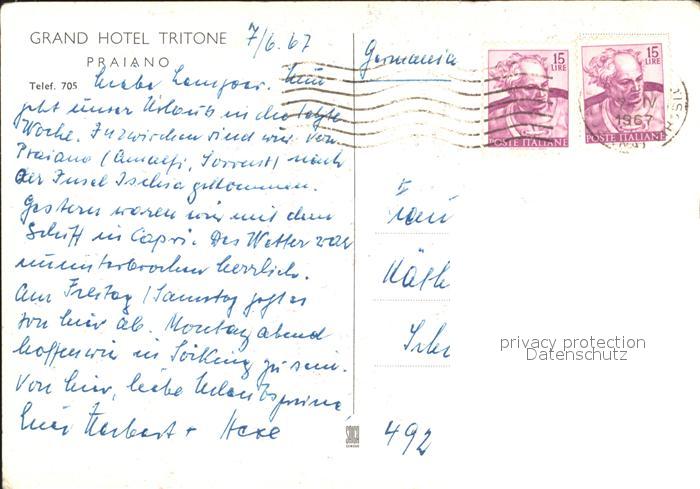 GRAND HOTEL TRITONE
PRAIANO
Telef. 705
7/6.67
Liebe Nun
geht unser Urlaub in die letzte
Woche. Inzwischen sind wir von
Praiano (Amalfi, Sorrent) nach
der Insel Ischia gekommen.
Gestern waren wir mit dem
Schiff in Capri. Das Wetter war
ununterbrochen herrlich.
Am Freitag / Samstag geht es
von hier ab. Montag abend
hoffen wir in Söcking zu sein.
Von hier, liebe Urlaubsgrüße
Herbert + Hexe
Germania
15
LIRE
POSTE ITALIANE
15
LIRE
POSTE ITALIANE
1967
Frau
Käth
492
privacy protection
Datenschutz